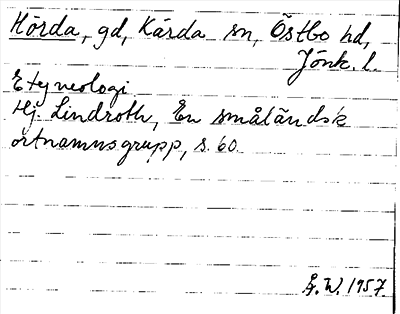 Hörda, gd, Kärda sn, Östbo hd,
Jönk. l.
Etymologi
Hj. Lindroth, En småländsk
ortnamnsgrupp, s. 60.
Å. W. 1957